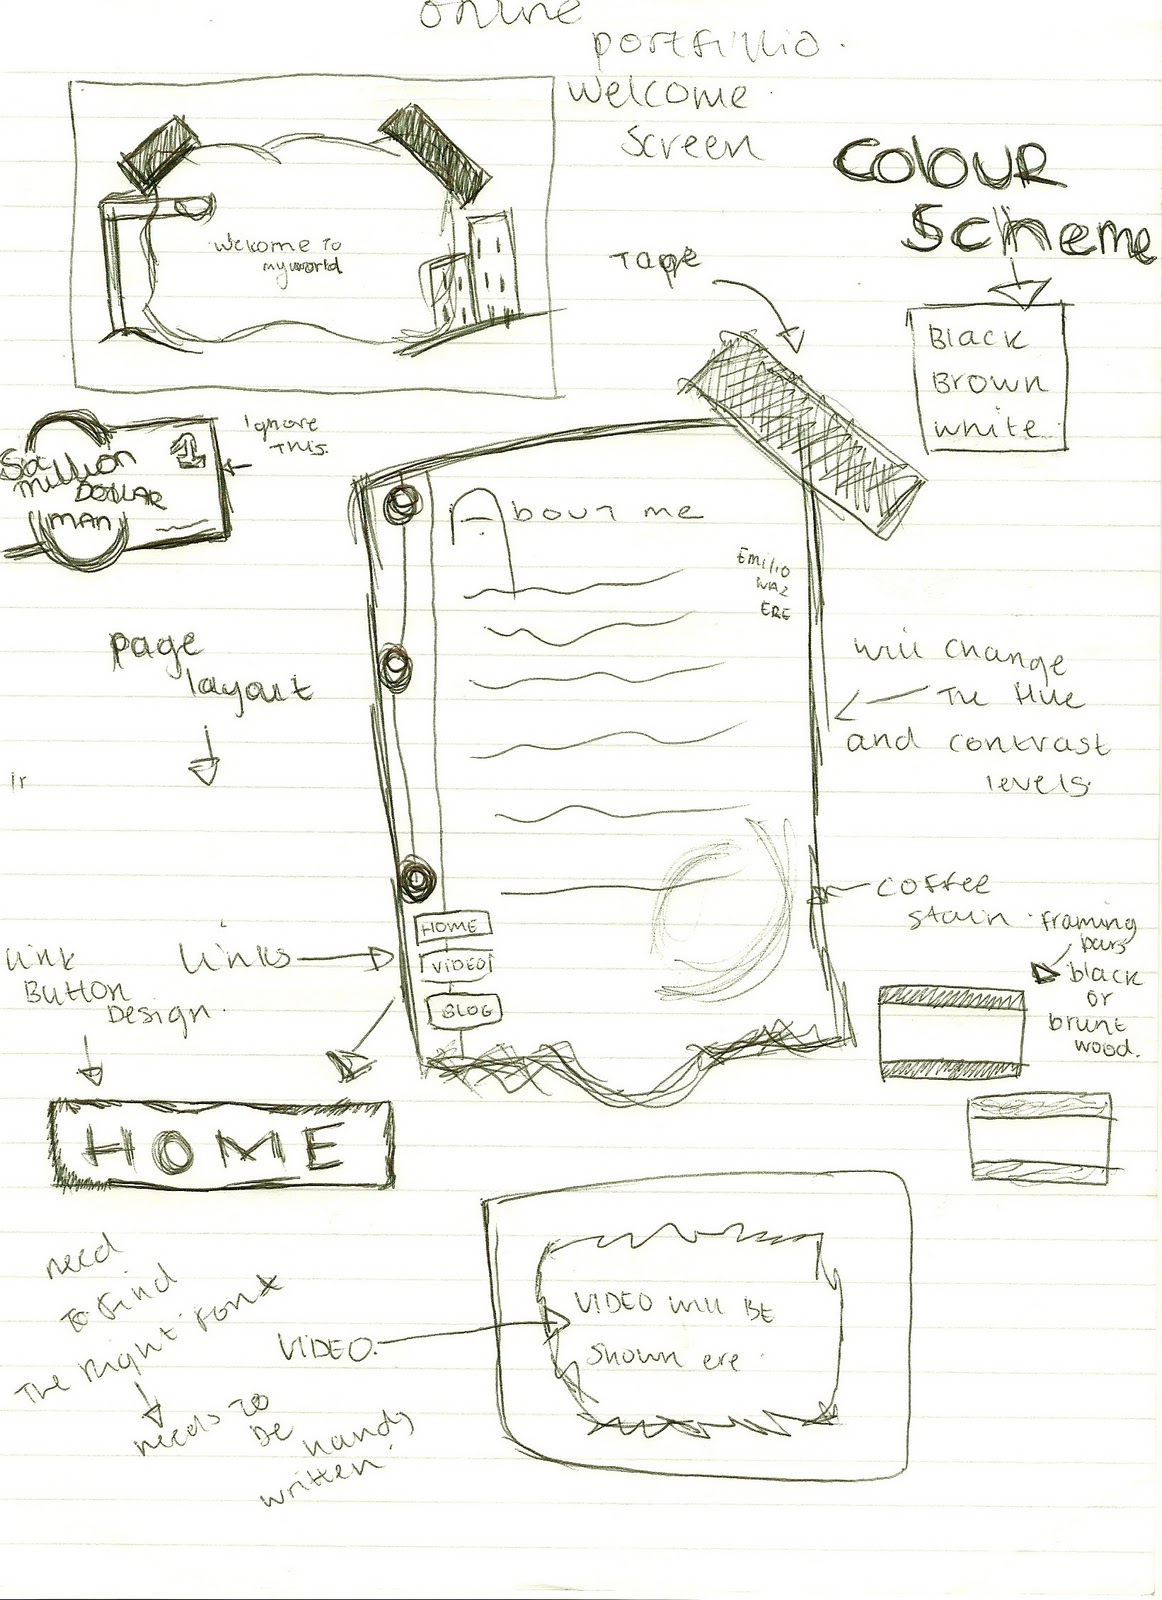 online
portfillio.
welcome
screen
welcome to
my world
colour
scheme
Black
Brown
white
Tape
Ignore
This.
1
Six
million
Dollar
man
About me
Emilio
waz
ERE
page
layout
will change
The Hue
and contrast
levels.
coffee
stain.
framing
bars
black
or
brunt
wood.
Links
HOME
VIDEO
BLOG
Link
Button
Design.
HOME
need
To find
The right font
needs to
be
handy
written
VIDEO.
VIDEO will BE
shown ere.